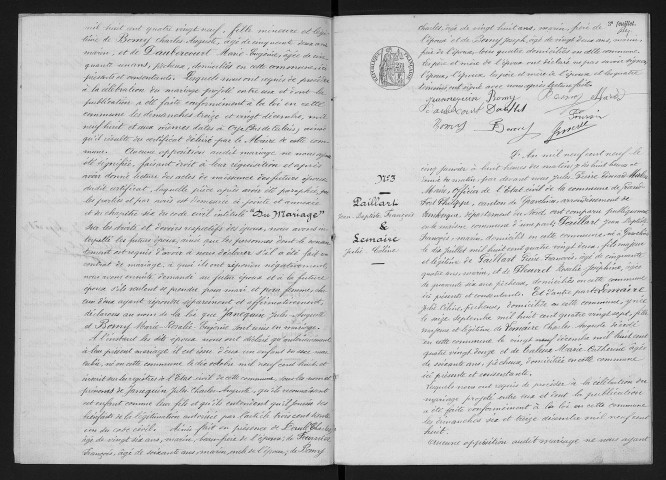 mil huit cent quatre vingt neuf, fille mineure et légi-
time de Bomy Charles Auguste, âgé de cinquante deux ans
marin, et de
quarante ans, pêcheuse, domiciliés en cette commune
présents et consentants. Lesquels nous ont requis de procéder
à la célébration du mariage projeté entre eux et dont les
publications a été faite conformément à la loi en cette
commune les dimanches treize et vingt décembre, mil
neuf cent huit et aux mêmes dates à
ainsi qu'il résulte du certificat délivré par le Maire de cette com-
mune. Aucune opposition audit mariage ne nous ayant
été signifiée, faisant droit à leur réquisition et après
avoir donné lecture des actes de naissance des futurs époux,
dudit certificat, laquelle pièce après avoir été paraphée par
les parties et par nous et annexée
et du chapitre six du code civil intitulé "Du Mariage"
sur les droits et devoirs respectifs des époux, nous avons in-
terpellé les futurs époux, ainsi que les personnes dont le consen-
tement est requis d'avoir à nous déclarer s'il a été fait un
contrat de mariage, à quoi ils ont répondu négativement,
nous avons ensuite demandé au futur époux et à la future
épouse s'ils veulent se prendre pour mari et pour femme, cha-
cun d'eux ayant répondu séparément et affirmativement,
déclarons au nom de la loi que Janequin Jules Auguste
et Bomy Marie sont unis en mariage.
A l'instant les dits époux nous ont déclaré qu'antérieurement
à leur présent mariage il est issu d'eux un enfant de sexe mas-
culin, né en cette commune le dix octobre mil neuf cent huit et
inscrit sur les registres de l'Etat civil de cette commune, sous les noms et
prénoms de Janequin Jules Charles Auguste, qu'ils reconnaissent
cet enfant comme leur fils et qu'ils entendent qu'il jouisse des
bienfaits de la légitimation autorisée par l'article trois cent trente
un du code civil. Ainsi fait en présence de
âgé de vingt six ans, marin, beau-frère de l'époux; de Fournier
François, âgé de soixante ans, marin, oncle de l'époux; de Bomy
Charles, âgé de vingt huit ans, marin, frère de
l'épouse et de Bomy Joseph, âgé de vingt deux ans, marin,
de l'épouse, tous quatre domiciliés en cette commune
les père et mère de l'époux ont déclaré ne pas savoir signer
l'époux, l'épouse, les père et mère de l'épouse et les quatre
témoins ont signé avec nous après lecture faite
REPUBLIQUE FRANCAISE
Bomy
Fournier
Nº 3
Paillart
Jean Baptiste François
&
Lemaire
Julie Céline
L'An mil neuf cent neuf le
cinq janvier à huit heures du matin, à huit heures et
demie du matin, par devant nous Jules Pierre
Maire, Officier de l'Etat Civil de la commune de Grand
Fort Philippe, canton de Gravelines, arrondissement de
Dunkerque, département du Nord ont comparu publiquement
en la maison commune d'une part Paillart Jean Baptiste
François, marin, domicilié en cette commune, né à Gravelines
le dix juillet mil huit cent quatre vingt deux, fils majeur
et légitime de Paillart Pierre François, âgé de cinquante
quatre ans, marin, et de Joséphine, âgée
de quarante six ans, pêcheuse, domiciliés en cette commune
ici présents et consentants. Et d'autre part Lemaire
Julie Céline, pêcheuse, domiciliée en cette commune, y née
le seize septembre mil huit cent quatre vingt sept, fille
majeure et légitime de Lemaire Charles Auguste décédé
en cette commune le vingt neuf décembre mil huit cent
quatre vingt onze et de Marie Catherine âgée
de soixante ans, pêcheuse, domiciliée en cette commune
ici présente et consentante.
Lesquels nous ont requis de procéder à la célébration du
mariage projeté entre eux et dont la publication
a été faite conformément à la loi en cette commune
les dimanches six et treize décembre mil neuf cent
huit.
Aucune opposition audit mariage ne nous ayant